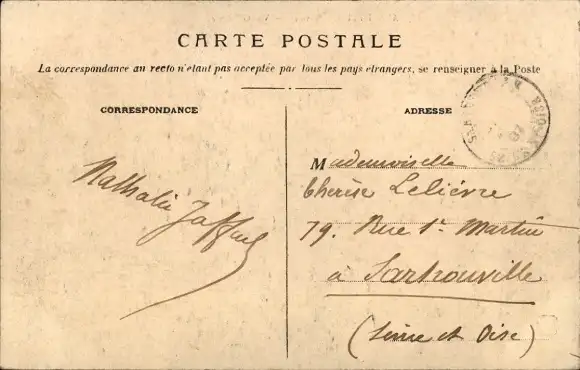 CARTE POSTALE
La correspondance au recto n'étant pas acceptée par tous les pays étrangers, se renseigner à la Poste
CORRESPONDANCE
ADRESSE
Nathalie
Mademoiselle
Therèse Lelièvre
79. Rue St Martin
à Sartrouville
(Seine et Oise)